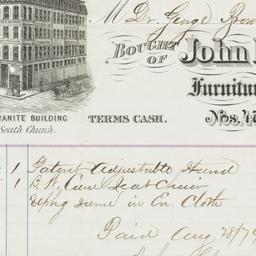 M Dr. George Brow
BOUGHT OF John
Furnitur
GRANITE BUILDING
South Church.
TERMS CASH.
Nos. 47
1 Patent Adjustable Stand
1 B. W. Cane Seat Chair
in En. Cloth
Paid Aug 28/79